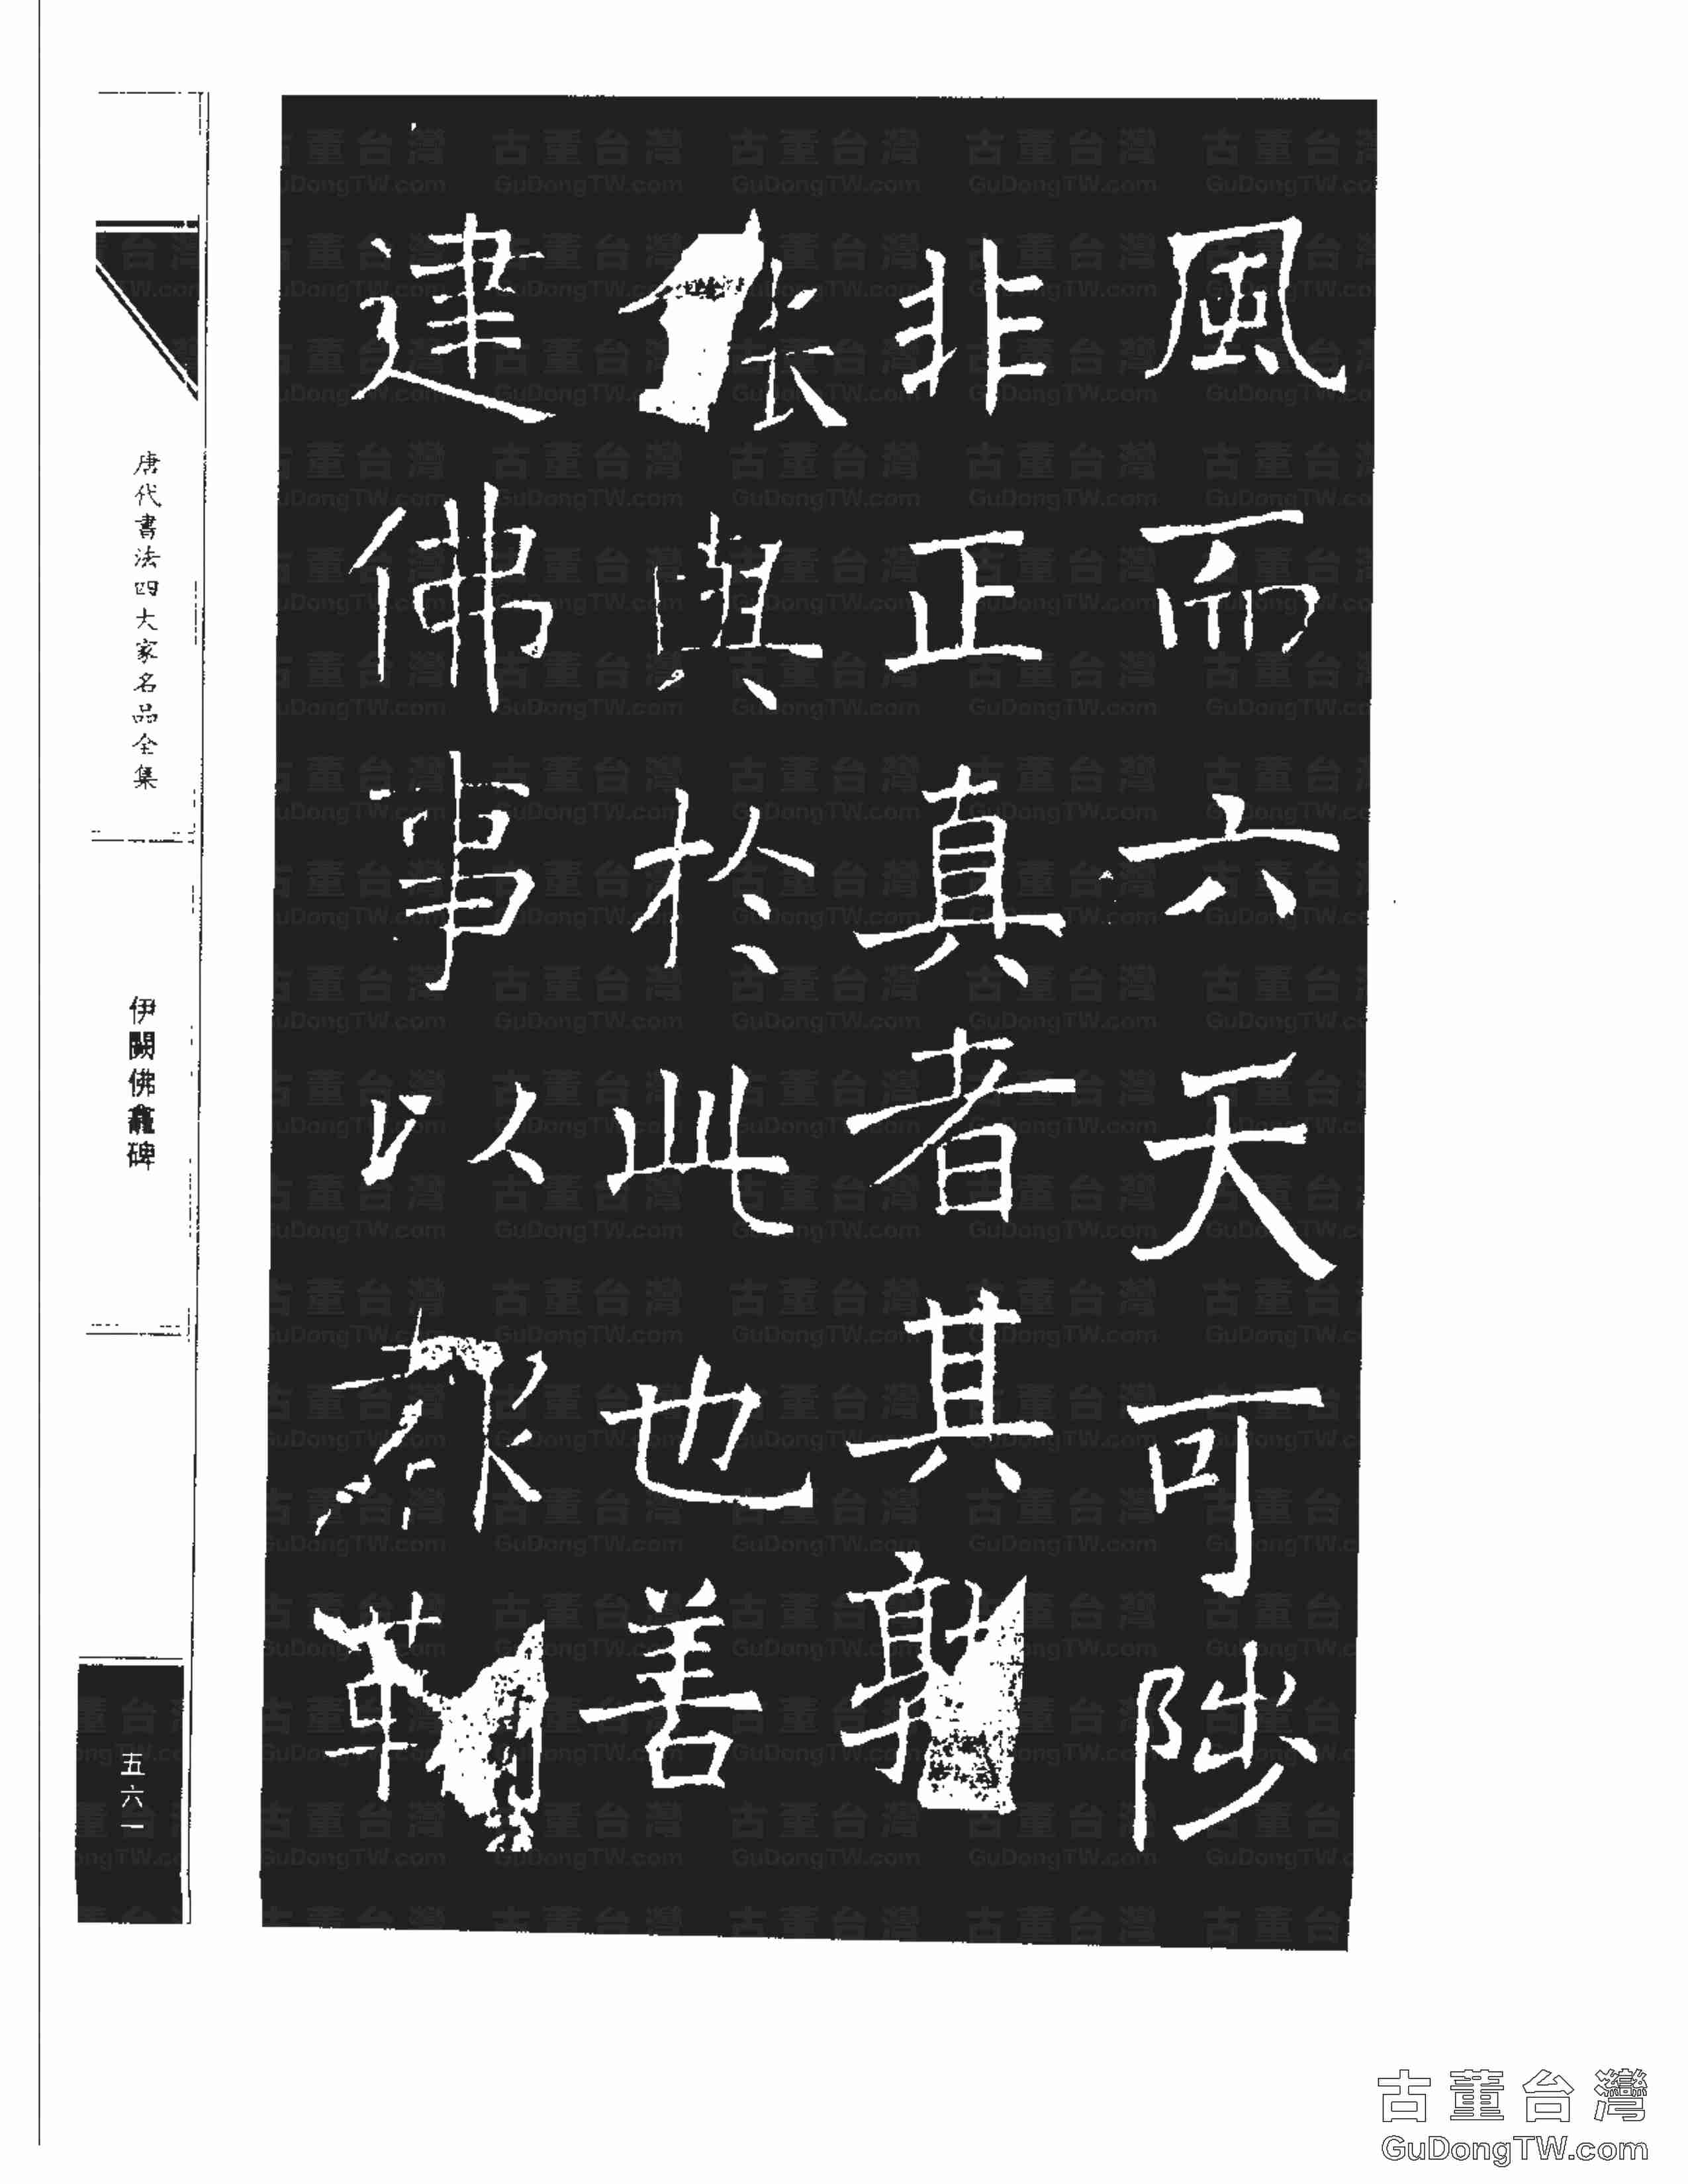 風而六天可陟
非正真者其孰
能與於此也善
建佛事以報鞠
唐代書法四大家名品全集
伊闕佛龕碑
五六一
古董台灣
GuDongTW.com